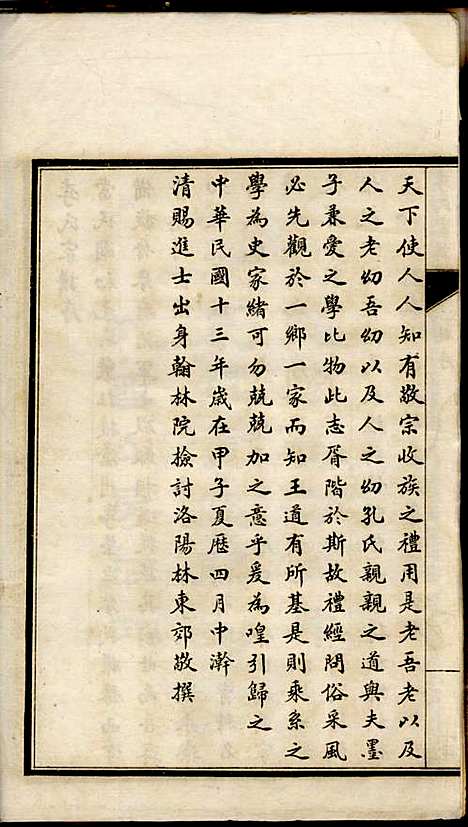 天下使人人知有敬宗收族之禮用是老吾老以及
人之老幼吾幼以及人之幼孔氏親親之道與夫墨
子兼愛之學比物此志胥階於斯故禮經問俗采風
必先觀於一鄉一家而知王道有所基是則乘系之
學為史家緒可勿兢兢加之意乎爰為喤引歸之
中華民國十三年歲在甲子夏曆四月中澣
清賜進士出身翰林院檢討洛陽林東郊敬撰